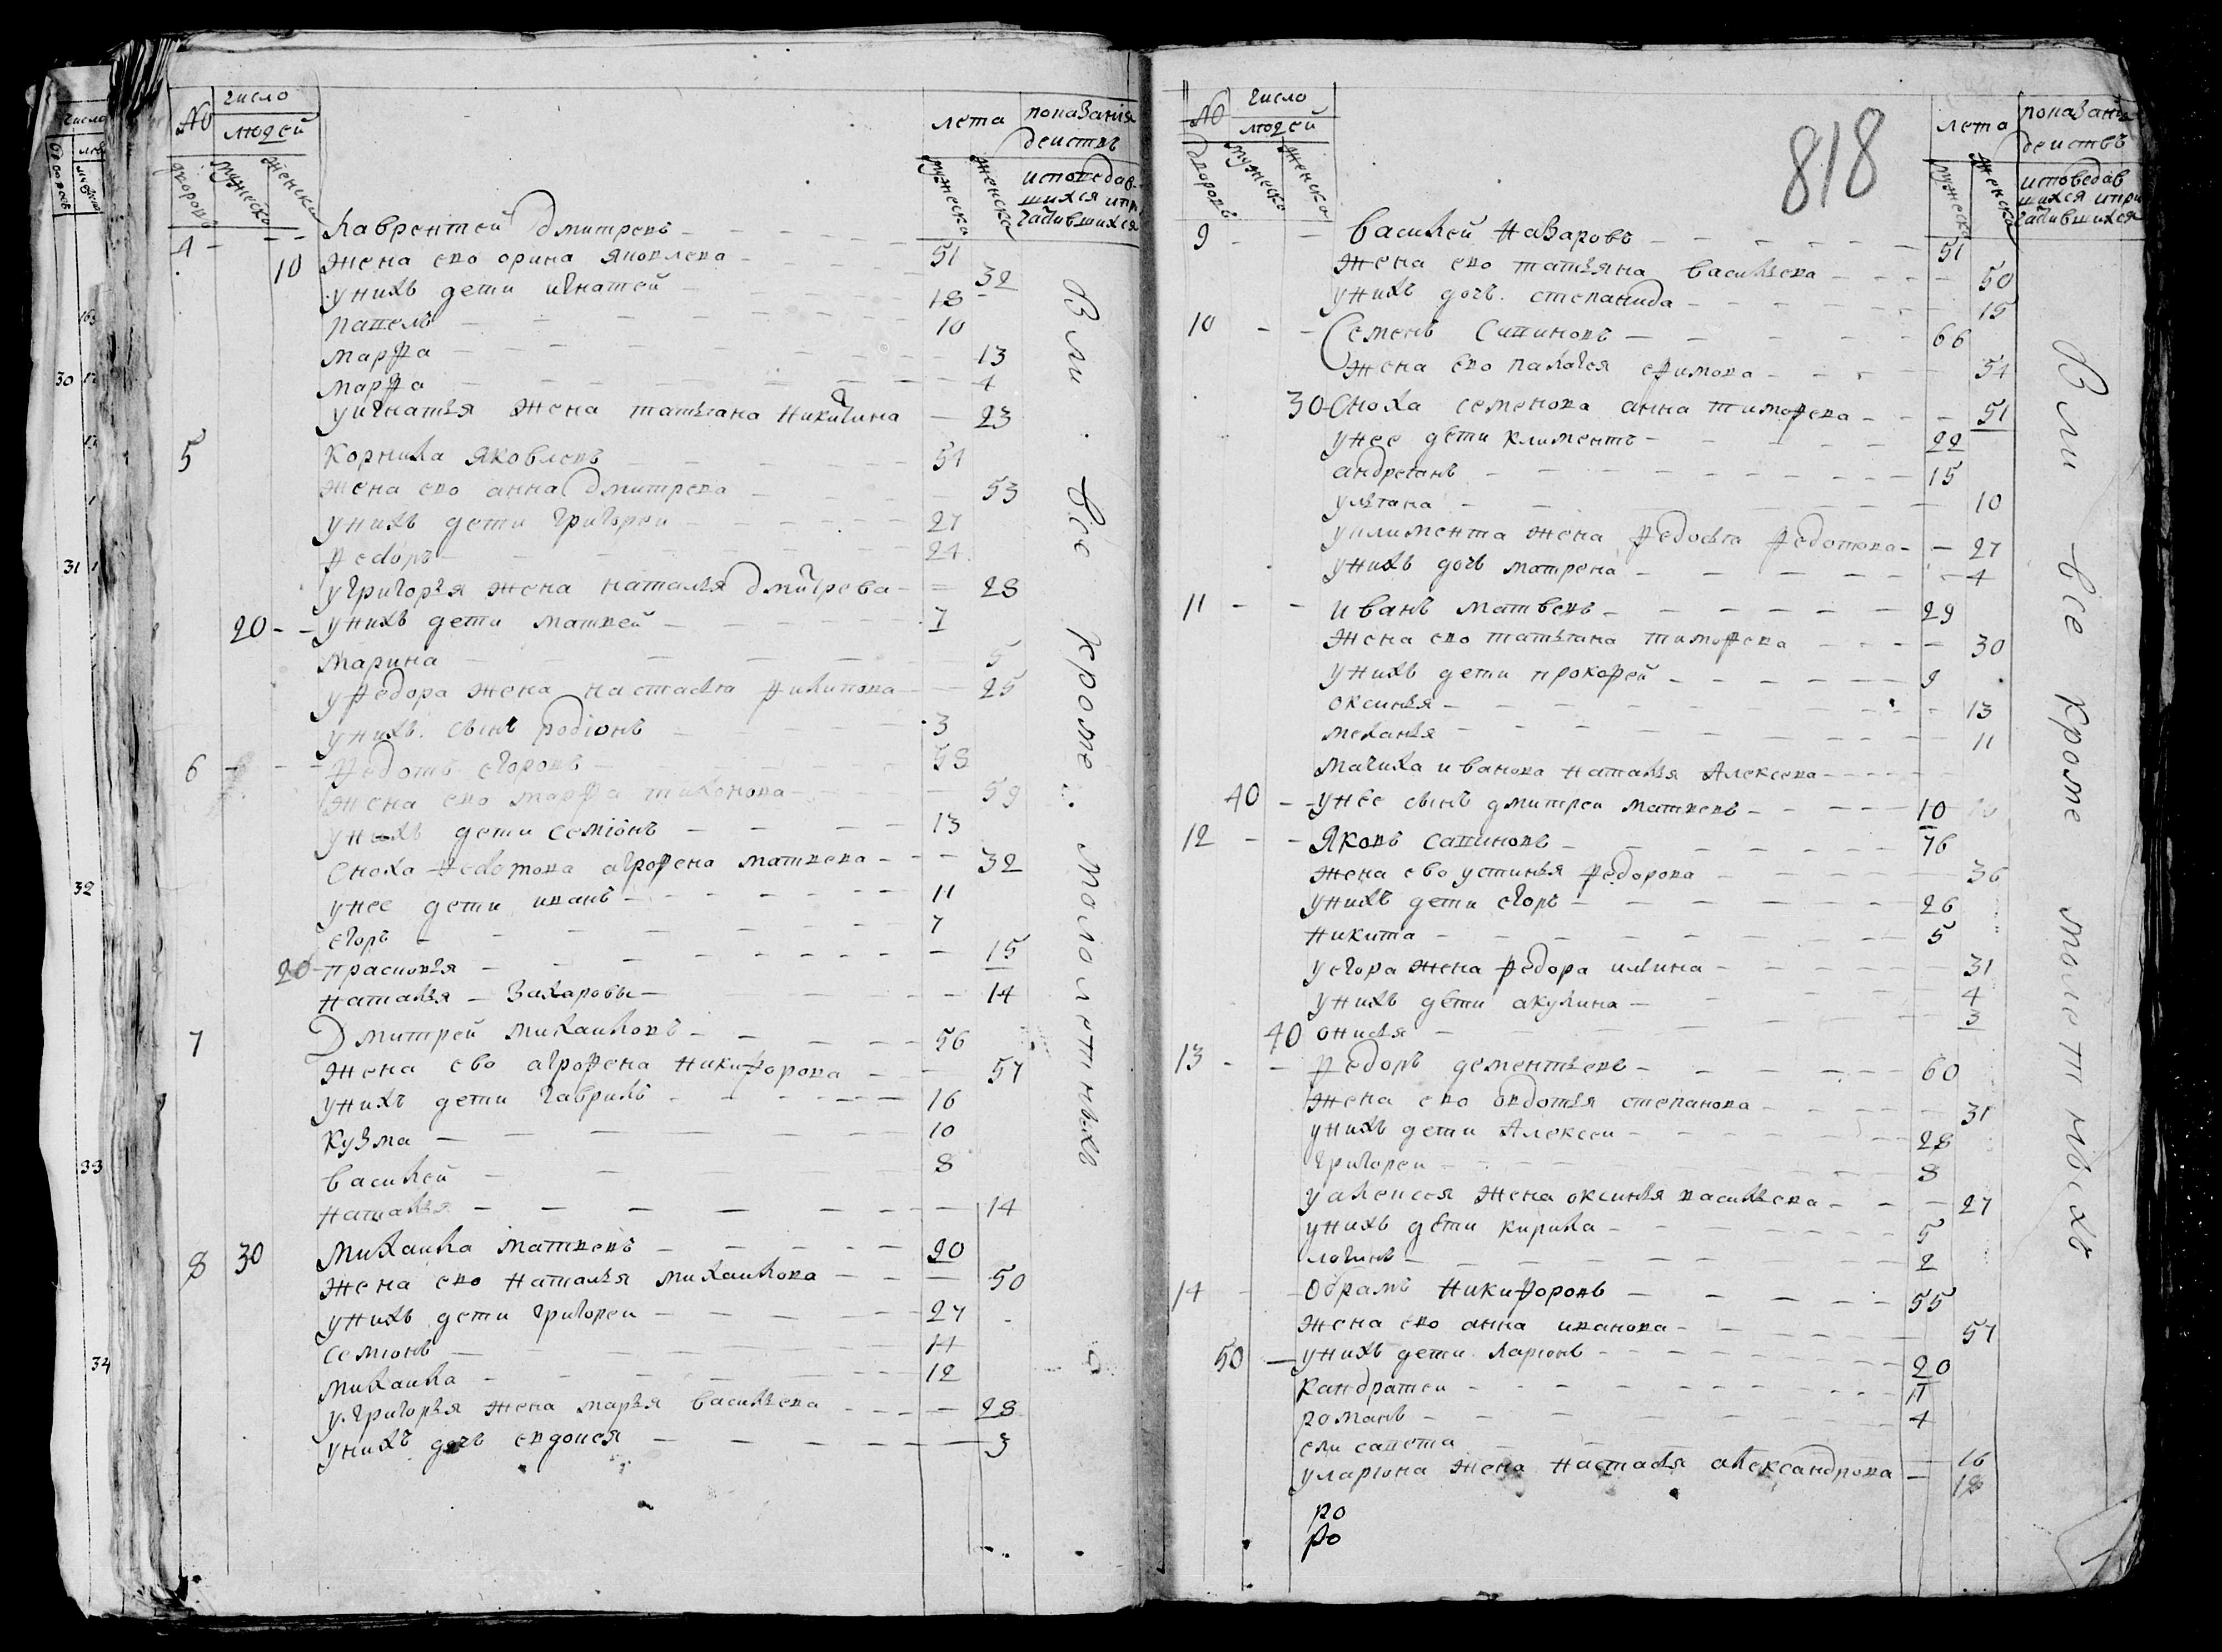 № число людей
лета
показания действъ
дворовъ мужеска женска
мужеска женска
исповедав-
шихся и при
чащившихся
4 Лаврентей Дмитревъ 51
10 жена ево орина Яковлева 32
у нихъ дети игнатей 18
павелъ 10
марфа 13
марфа 4
у игнатья жена татьяна Никитина 23
5 Корнила Яковлевъ 54
жена ево анна Дмитрева 53
у нихъ дети григореи 27
федоръ 24
у григорья жена наталья дмитрева 28
20 у нихъ дети матвей 7
марина 5
у федора жена настасья филипова 25
у нихъ сынъ родіонъ 3
6 федотъ егоровъ 58
жена ево марфа тихонова 59
у нихъ дети семіонъ 13
сноха федотова агрофена матвева 32
у нее дети иванъ 11
егоръ 7
20 прасковя 15
наталья Захаровы 14
7 Дмитрей михаиловъ 56
жена ево агрофена никифорова 57
у нихъ дети гаврилъ 16
кузма 10
василей 8
наталья 14
8 30 михаила матвевъ 20
жена ево наталья михаилова 50
у нихъ дети григореи 27
семионъ 14
михаила 12
у григорья жена марья васильева 28
у нихъ дочь евдокея 3
Вли все кроме малолетныхъ
818
№ число людей
лета
показания действъ
дворовъ мужеска женска
мужеска женска
исповедав
шихся и при
чащившихся
9 василей назаровъ 51
жена ево татьяна васильева 50
у нихъ дочь степанида 15
10 Семенъ Савиновъ 66
жена ево палагея ефимова 54
30 сноха семенова анна тимофева 51
у нее дети климентъ 22
андреянъ 15
ульяна 10
у климента жена федосья федотова 27
у нихъ дочь матрена 4
11 иванъ матвевъ 29
жена ево татьяна тимофева 30
у нихъ дети прокофей 9
оксинья 13
меланья 11
мачиха иванова наталья Алексева
40 у нее сынъ дмитреи матвевъ 10
12 Яковъ савиновъ 76
жена ево устинья федорова 36
у нихъ дети егоръ 26
никита 5
у егора жена федора ильина 31
у нихъ дети акулина 4
40 онисья 3
13 федоръ дементьевъ 60
жена ево овдотья степанова 31
у нихъ дети Алексеи 28
григореи 8
у алексея жена оксинья васильева 27
у нихъ дети кирила 5
логинъ 2
14 обрамъ никифоровъ 55
жена ево анна иванова 57
50 у нихъ дети ларионъ 20
кандратеи 11
романъ 4
елисавета 16
у лариона жена настасья александрова 18
ро
ро
Вли все кроме малетныхъ